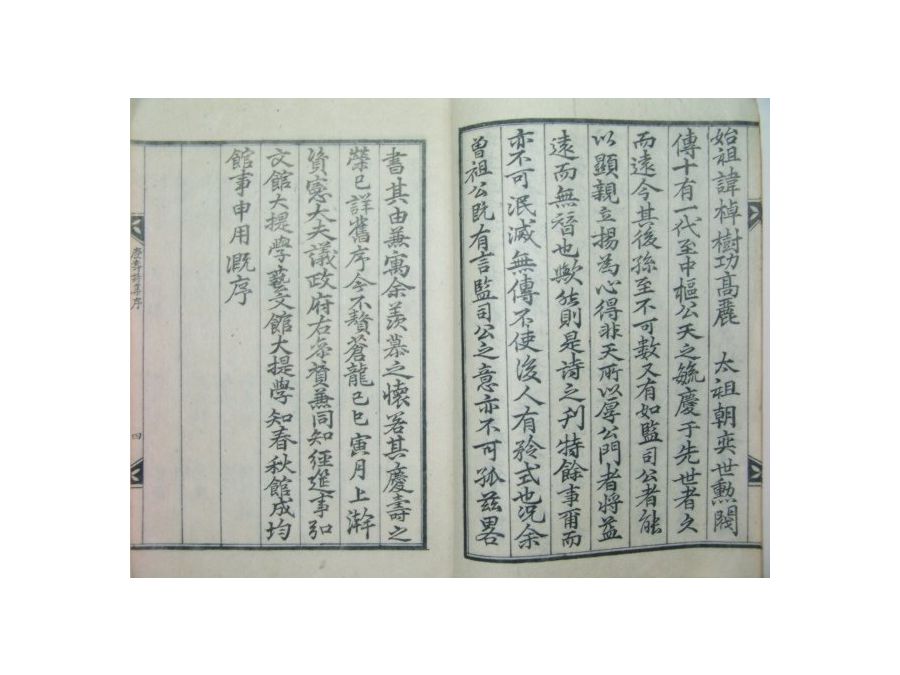 始祖諱棹樹功高麗　太祖朝奕世勲閥
傳十有一代至中樞公天之毓慶于先世者久
而遠今其後孫至不可數又有如監司公者能
以顯親立揚為心得非天所以厚公門者將益
遠而無替也歟然則是詩之刊特餘事爾而
亦不可泯滅無傳不使後人有矜式也況余
曾祖公既有言監司公之意亦不可孤茲畧
書其由兼寓余羡慕之懷若其慶壽之
榮已詳舊序今不贅蒼龍己巳寅月上澣
資憲大夫議政府右叅贊兼同知經筵事弘
文館大提學藝文館大提學知春秋館成均
館事申用溉序
慶壽詩集序
四